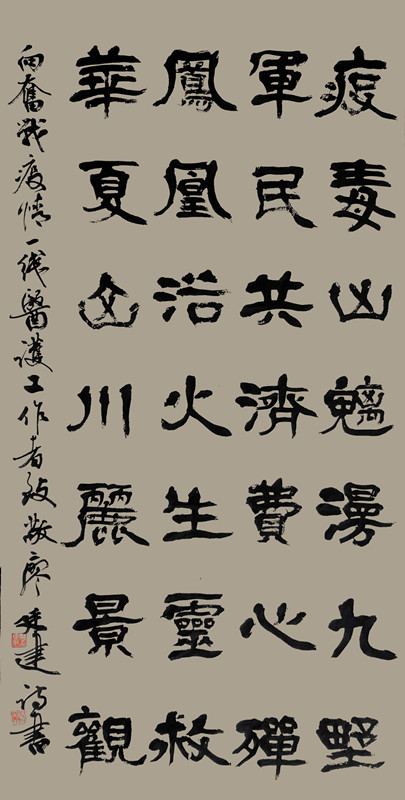 疫毒凶魑漫九野
軍民共濟費心殫
鳳凰浴火生靈救
華夏山川麗景觀
向奮战疫情一线醫護工作者致敬廖建诗書